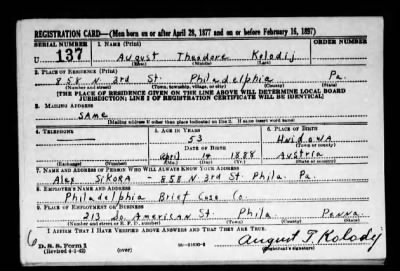 REGISTRATION CARD—(Men born on or after April 28, 1877 and on or before February 16, 1897)
SERIAL NUMBER 1. NAME (Print) ORDER NUMBER
U 137 August Theodore Kolodij
(First) (Middle) (Last)
2. PLACE OF RESIDENCE (Print)
858 N 3rd St. Philadelphia Pa.
(Number and street) (Town, township, village, or city) (County) (State)
[THE PLACE OF RESIDENCE GIVEN ON THE LINE ABOVE WILL DETERMINE LOCAL BOARD
JURISDICTION; LINE 2 OF REGISTRATION CERTIFICATE WILL BE IDENTICAL]
3. MAILING ADDRESS
SAME
[Mailing address if other than place indicated on line 2. If same insert word same]
4. TELEPHONE 5. AGE IN YEARS 6. PLACE OF BIRTH
53 Hnidowa
DATE OF BIRTH (Town or county)
April 14 1888 Austria
(Exchange) (Number) (Mo.) (Day) (Yr.) (State or country)
7. NAME AND ADDRESS OF PERSON WHO WILL ALWAYS KNOW YOUR ADDRESS
Alex SIKORA - 858 N. 3rd St. Phila. Pa.
8. EMPLOYER'S NAME AND ADDRESS
Philadelphia Brief Case Co.
9. PLACE OF EMPLOYMENT OR BUSINESS
213 So. American St. Phila. Penna
(Number and street or R. F. D. number) (Town) (County) (State)
I AFFIRM THAT I HAVE VERIFIED ABOVE ANSWERS AND THAT THEY ARE TRUE.
D. S. S. Form 1
(Revised 4-1-42) (over) August T. Kolody